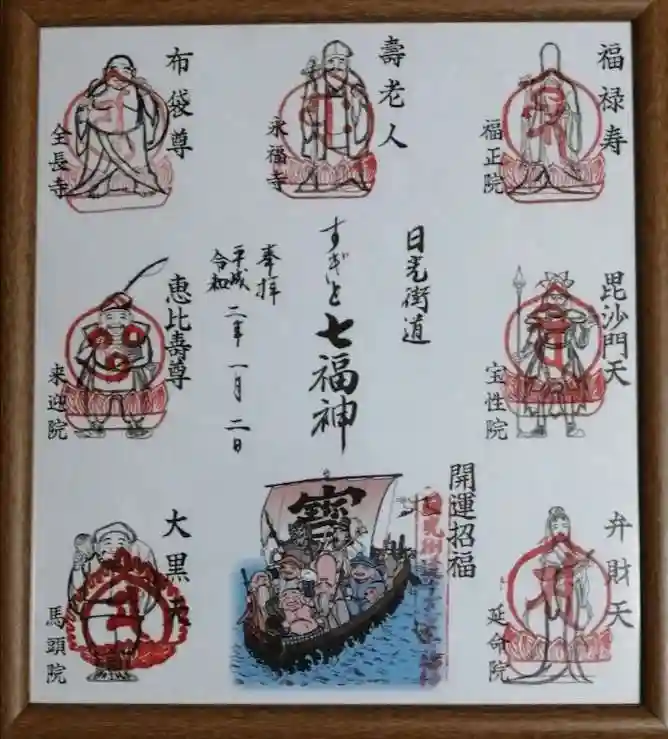 福禄寿
福正院
壽老人
永福寺
布袋尊
全長寺
毘沙門天
宝性院
日光街道
すぎと七福神
奉拝
平成
令和 二年 一月 二日
恵比壽尊
来迎院
弁財天
延命院
開運招福
寳
大黒天
馬頭院